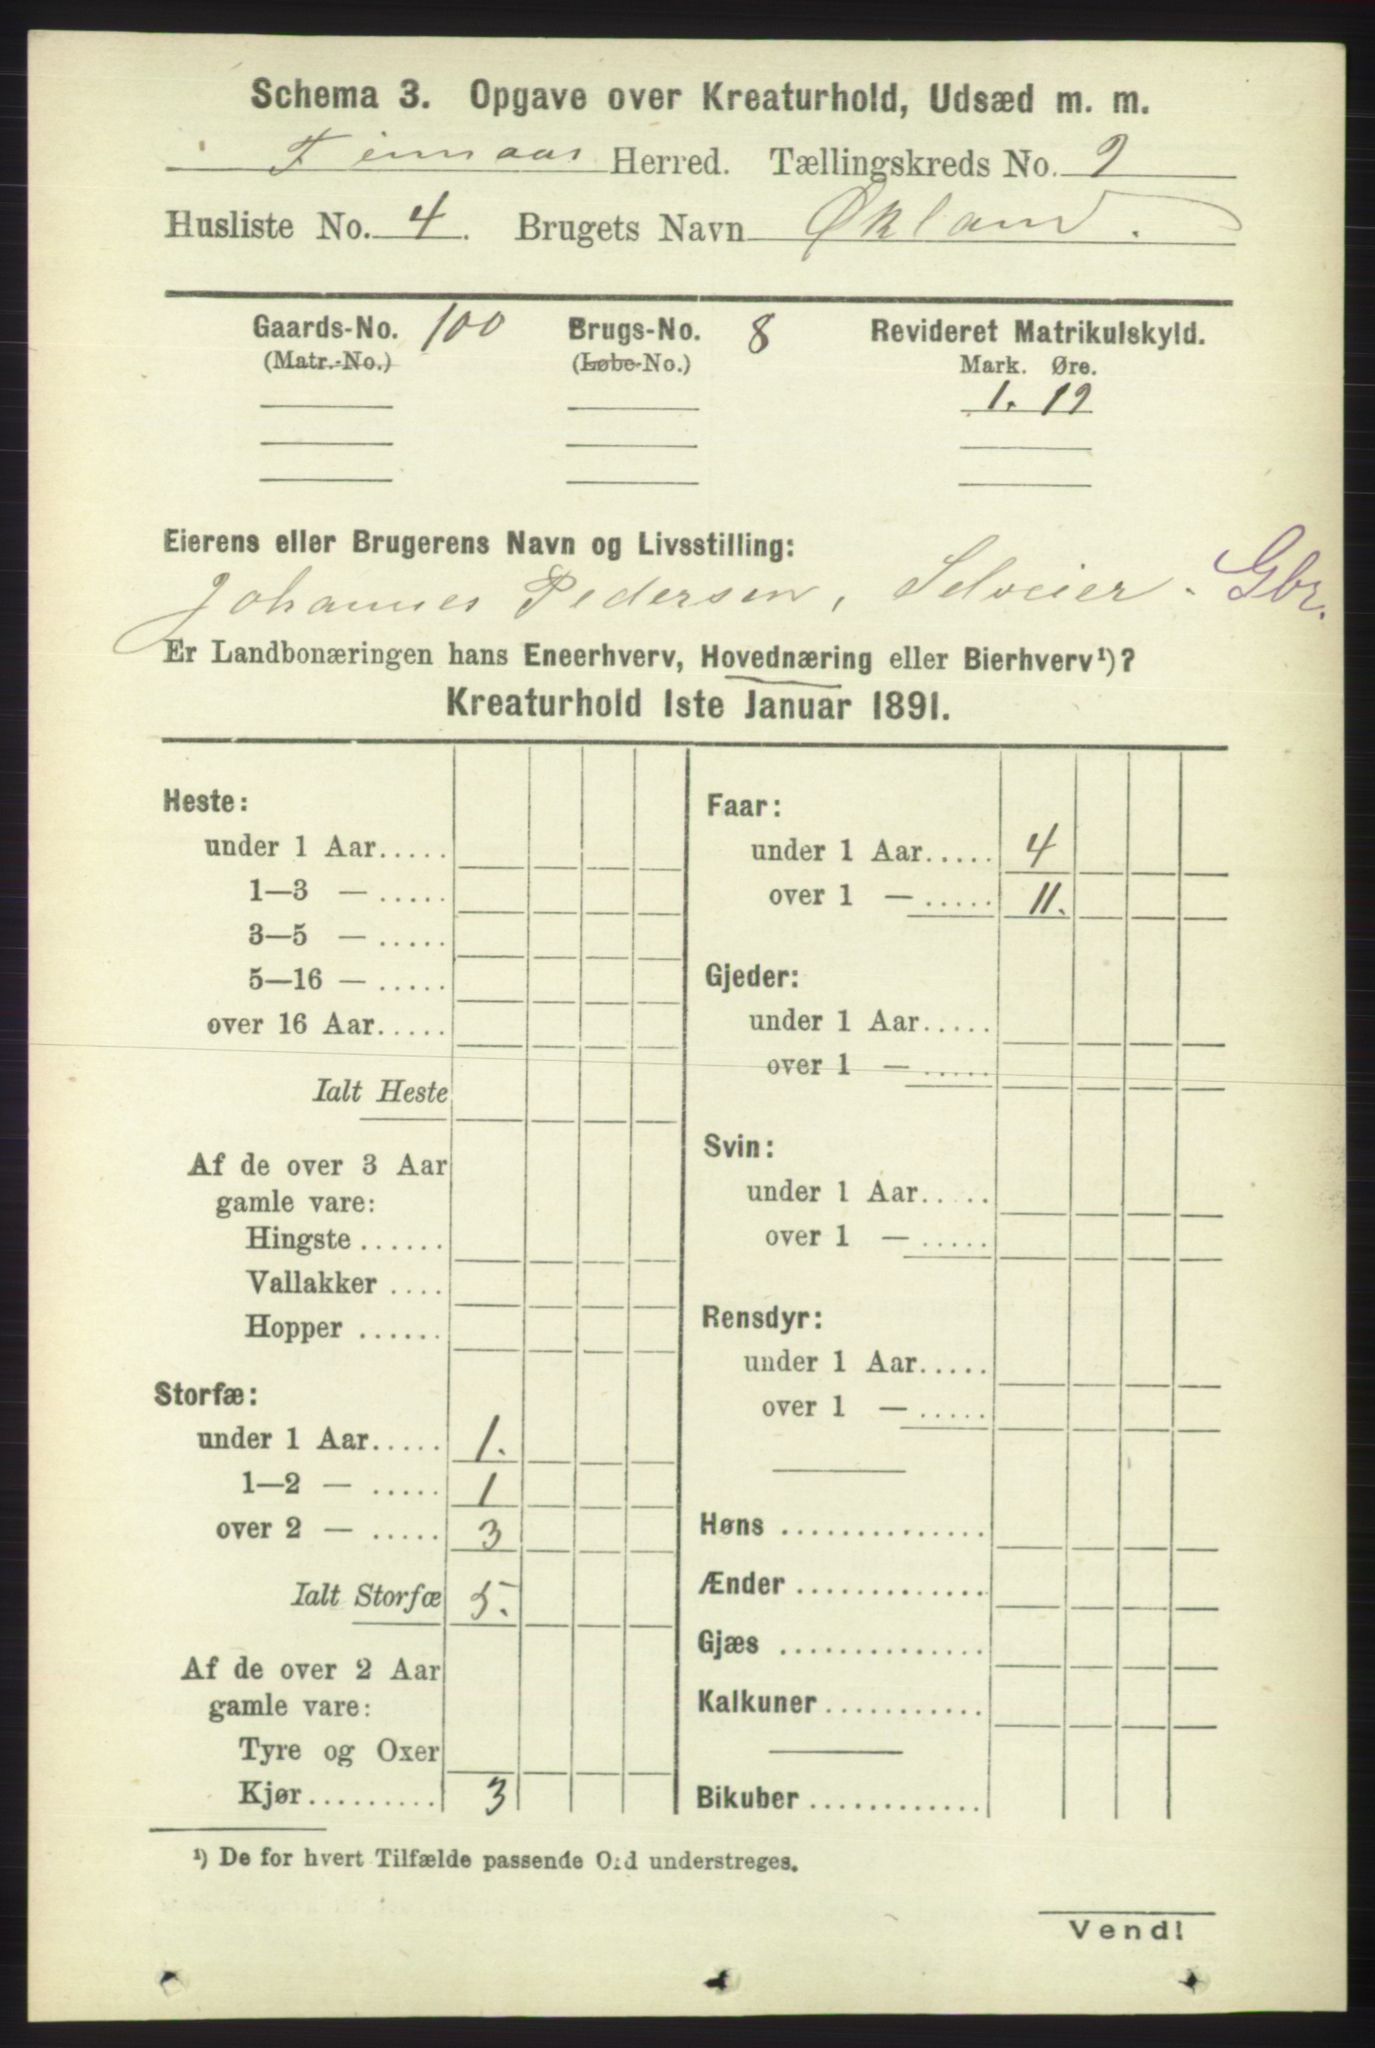 Schema 3. Opgave over Kreaturhold, Udsæd m. m.
Finnaas Herred. Tællingskreds No. 9
Husliste No. 4. Brugets Navn Økland.
Gaards-No. 100 Brugs-No. 8 Revideret Matrikulskyld.
(Matr.-No.) (Løbe-No.) Mark. Øre.
1. 19
Eierens eller Brugerens Navn og Livsstilling:
Johannes Pedersen, Selveier. Gbr.
Er Landbonæringen hans Eneerhverv, Hovednæring eller Bierhverv¹)?
Kreaturhold 1ste Januar 1891.
Heste:
under 1 Aar.....
1—3 — .....
3—5 — .....
5—16 — .....
over 16 Aar.....
Ialt Heste
Af de over 3 Aar
gamle vare:
Hingste ......
Vallakker ....
Hopper ......
Storfæ:
under 1 Aar..... 1.
1—2 — ..... 1
over 2 — ..... 3
Ialt Storfæ 5.
Af de over 2 Aar
gamle vare:
Tyre og Oxer
Kjør......... 3
Faar:
under 1 Aar..... 4
over 1 — ..... 11.
Gjeder:
under 1 Aar.....
over 1 — .....
Svin:
under 1 Aar.....
over 1 — .....
Rensdyr:
under 1 Aar.....
over 1 — .....
Høns ..............
Ænder .............
Gjæs ..............
Kalkuner ...........
Bikuber ............
¹) De for hvert Tilfælde passende Ord understreges.
Vend!